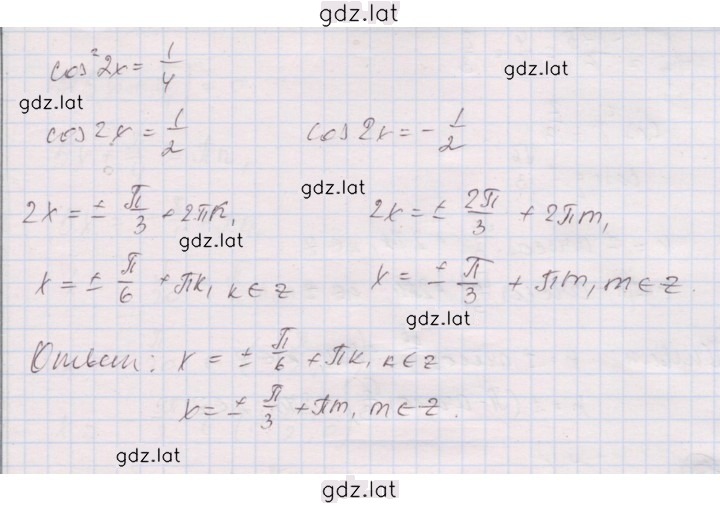 gdz.lat
cos²2x = 1/4
gdz.lat
gdz.lat
cos2x = 1/2 cos2x = -1/2
gdz.lat
2x = ± π/3 + 2πk, 2x = ± 2π/3 + 2πm,
gdz.lat
x = ± π/6 + πk, k ∈ z x = ± π/3 + πm, m ∈ z.
gdz.lat
Ответ: x = ± π/6 + πk, k ∈ z
x = ± π/3 + πm, m ∈ z.
gdz.lat
gdz.lat